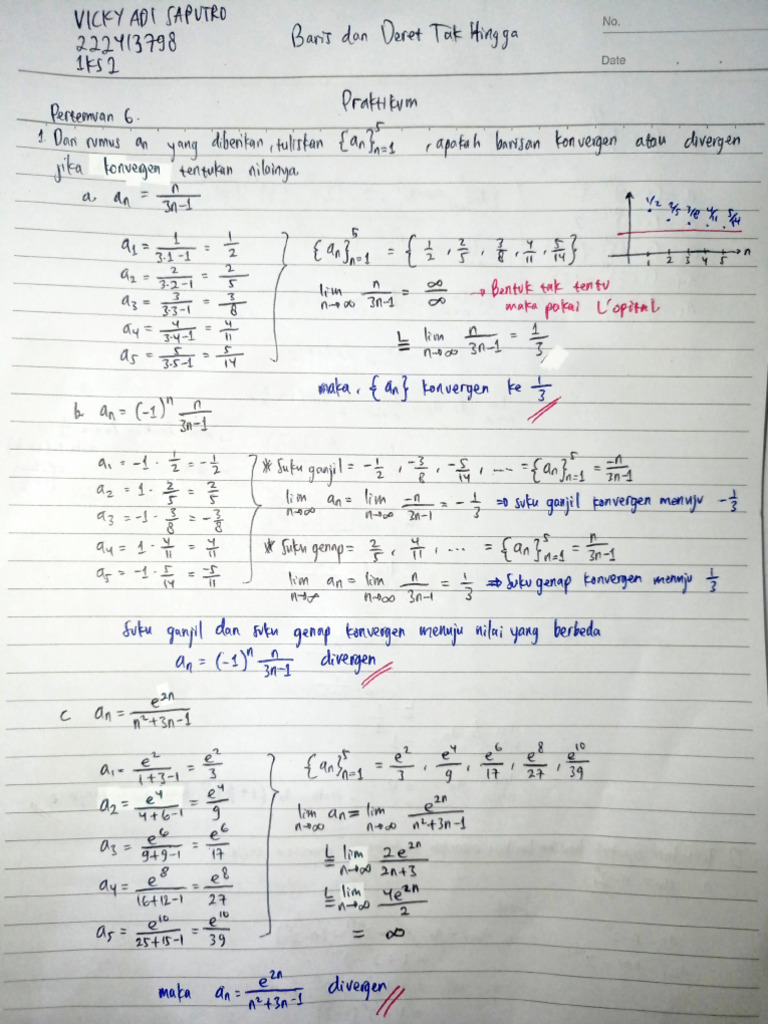 VICKY ADI SAPUTRO
222413798
1KS2
Baris dan Deret Tak Hingga
No.
Date
Praktikum
Pertemuan 6.
1. Dari rumus an yang diberikan, tuliskan {an}⁵n=1 , apakah barisan konvergen atau divergen
jika konvegen tentukan nilainya
a. an = n/(3n-1)
1/2 2/5 3/8 4/11 5/14
1 2 3 4 5 n
a1 = 1/(3·1-1) = 1/2
a2 = 2/(3·2-1) = 2/5
a3 = 3/(3·3-1) = 3/8
a4 = 4/(3·4-1) = 4/11
a5 = 5/(3·5-1) = 5/14
{an}⁵n=1 = {1/2, 2/5, 3/8, 4/11, 5/14}
lim n→∞ n/(3n-1) = ∞/∞ → Bentuk tak tentu
maka pakai L'opital
L= lim n→∞ n/(3n-1) = 1/3
maka, {an} konvergen ke 1/3
b. an = (-1)ⁿ n/(3n-1)
a1 = -1 · 1/2 = -1/2
a2 = 1 · 2/5 = 2/5
a3 = -1 · 3/8 = -3/8
a4 = 1 · 4/11 = 4/11
a5 = -1 · 5/14 = -5/11
* Suku ganjil = -1/2, -3/8, -5/14, ... = {an}⁵n=1 = -n/(3n-1)
lim n→∞ an = lim n→∞ -n/(3n-1) = -1/3 ⇒ suku ganjil konvergen menuju -1/3
* Suku genap = 2/5, 4/11, ... = {an}⁵n=1 = n/(3n-1)
lim n→∞ an = lim n→∞ n/(3n-1) = 1/3 ⇒ Suku genap konvergen menuju 1/3
Suku ganjil dan suku genap konvergen menuju nilai yang berbeda
an = (-1)ⁿ n/(3n-1) divergen
c an = e²ⁿ/(n²+3n-1)
a1 = e²/(1+3-1) = e²/3
a2 = e⁴/(4+6-1) = e⁴/9
a3 = e⁶/(9+9-1) = e⁶/17
a4 = e⁸/(16+12-1) = e⁸/27
a5 = e¹⁰/(25+15-1) = e¹⁰/39
{an}⁵n=1 = e²/3, e⁴/9, e⁶/17, e⁸/27, e¹⁰/39
lim n→∞ an = lim n→∞ e²ⁿ/(n²+3n-1)
L= lim n→∞ 2e²ⁿ/(2n+3)
L= lim n→∞ 4e²ⁿ/2
= ∞
maka an = e²ⁿ/(n²+3n-1) divergen